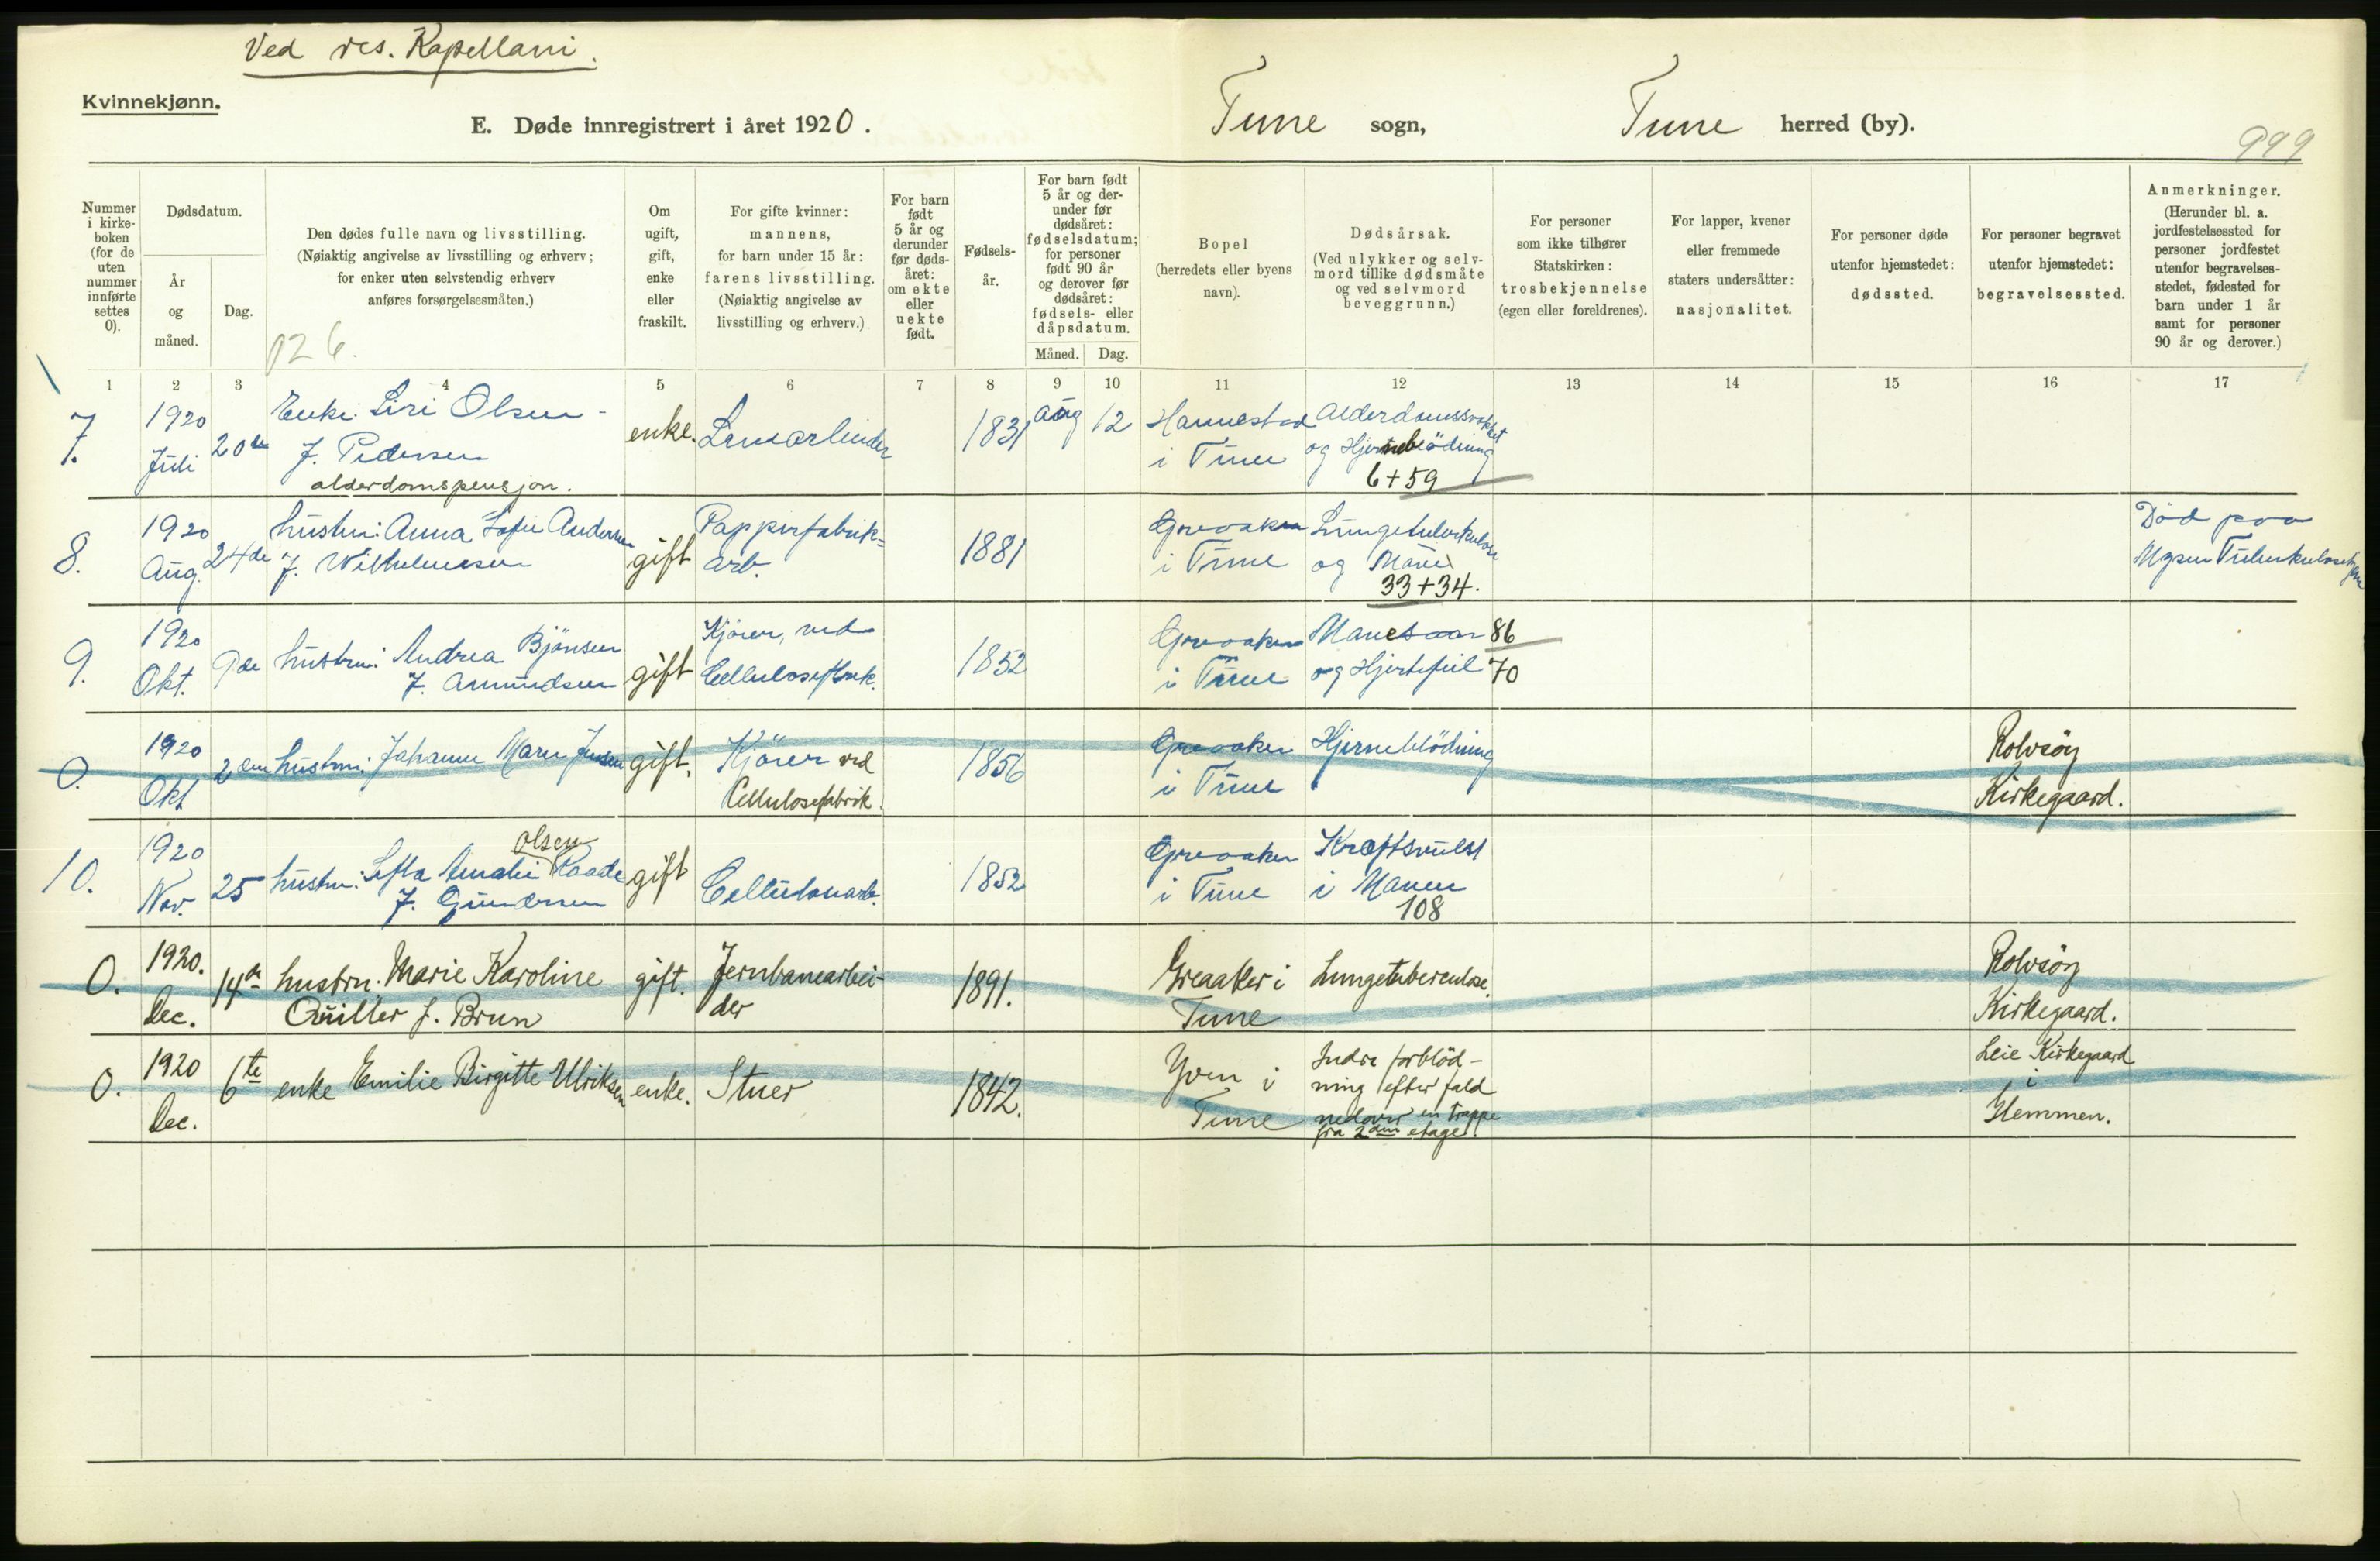 Ved res. Kapellani.
Kvinnekjønn.
E. Døde innregistrert i året 1920.
Tune sogn,
Tune herred (by).
999
Nummer i kirkeboken (for de uten nummer innførte settes 0).
Dødsdatum.
År og måned.
Dag.
Den dødes fulle navn og livsstilling.
(Nøiaktig angivelse av livsstilling og erhverv;
for enker uten selvstendig erhverv
anføres forsørgelsesmåten.)
026.
Om ugift, gift, enke eller fraskilt.
For gifte kvinner: mannens, for barn under 15 år: farens livsstilling. (Nøiaktig angivelse av livsstilling og erhverv.)
For barn født 5 år og derunder før dødsåret: om ekte eller uekte født.
Fødselsår.
For barn født 5 år og derunder før dødsåret: fødselsdatum; for personer født 90 år og derover før dødsåret: fødsels- eller dåpsdatum.
Måned. Dag.
Bopel (herredets eller byens navn).
Dødsårsak.
(Ved ulykker og selvmord tillike dødsmåte og ved selvmord beveggrunn.)
For personer som ikke tilhører Statskirken: trosbekjennelse (egen eller foreldrenes).
For lapper, kvener eller fremmede staters undersåtter: nasjonalitet.
For personer døde utenfor hjemstedet: dødssted.
For personer begravet utenfor hjemstedet: begravelsessted.
Anmerkninger.
(Herunder bl. a. jordfestelsessted for personer jordfestet utenfor begravelsesstedet, fødested for barn under 1 år samt for personer 90 år og derover.)
1 2 3 4 5 6 7 8 9 10 11 12 13 14 15 16 17
7. 1920 Juli 20de Enke: Siri Olsen
f. Pedersen
alderdomspensjon.
enke. 1831 Aug 12 Hannestad i Tune
Alderdomssvakhet
og Hjerneblödning
6+59
8. 1920 Aug. 24de hustru: Anna Sofie Andersen
f. Wilhelmsen
gift Pappirfabrik=
arb.
1881 Greaaker i Tune
Lungetuberkulose
og Mave
33+34.
Död paa
Mysen Tuberkulosehjem
9. 1920 Okt. 9de hustru: Andrea Bjönsen
f. Amundsen
gift Kjörer, ved
Cellulosefbrik.
1852 Greaaker i Tune
Mavesaar 86
og Hjertefeil 70
0. 1920 Okt 2den hustru: Johanne Marie Jensen gift.
Kjörer ved
Cellulosefabrik.
1856 Greaaker i Tune
Hjerneblödning
Rolvsöy
Kirkegaard.
10. 1920 Nov. 25 Olsen
hustru: Sofia Amalie Raade
f. Gundersen
gift Cellulosearb.
1852 Greaaker i Tune
Kræftsvulst
i Maven
108
0. 1920. Dec. 14de hustru: Marie Karoline
Quiller f. Brun
gift. Jernbanearbei-
der
1891. Greaaker i
Tune
Lungetuberculose.
Rolvsöy
Kirkegaard.
0. 1920 Dec. 6te enke Emilie Birgitte Ulriksen enke. Stuer 1842.
Yven i
Tune
Indre forblöd-
ning efter fald
nedover en trappe
fra 2den etage.
Leie Kirkegaard
i
Hemmen.